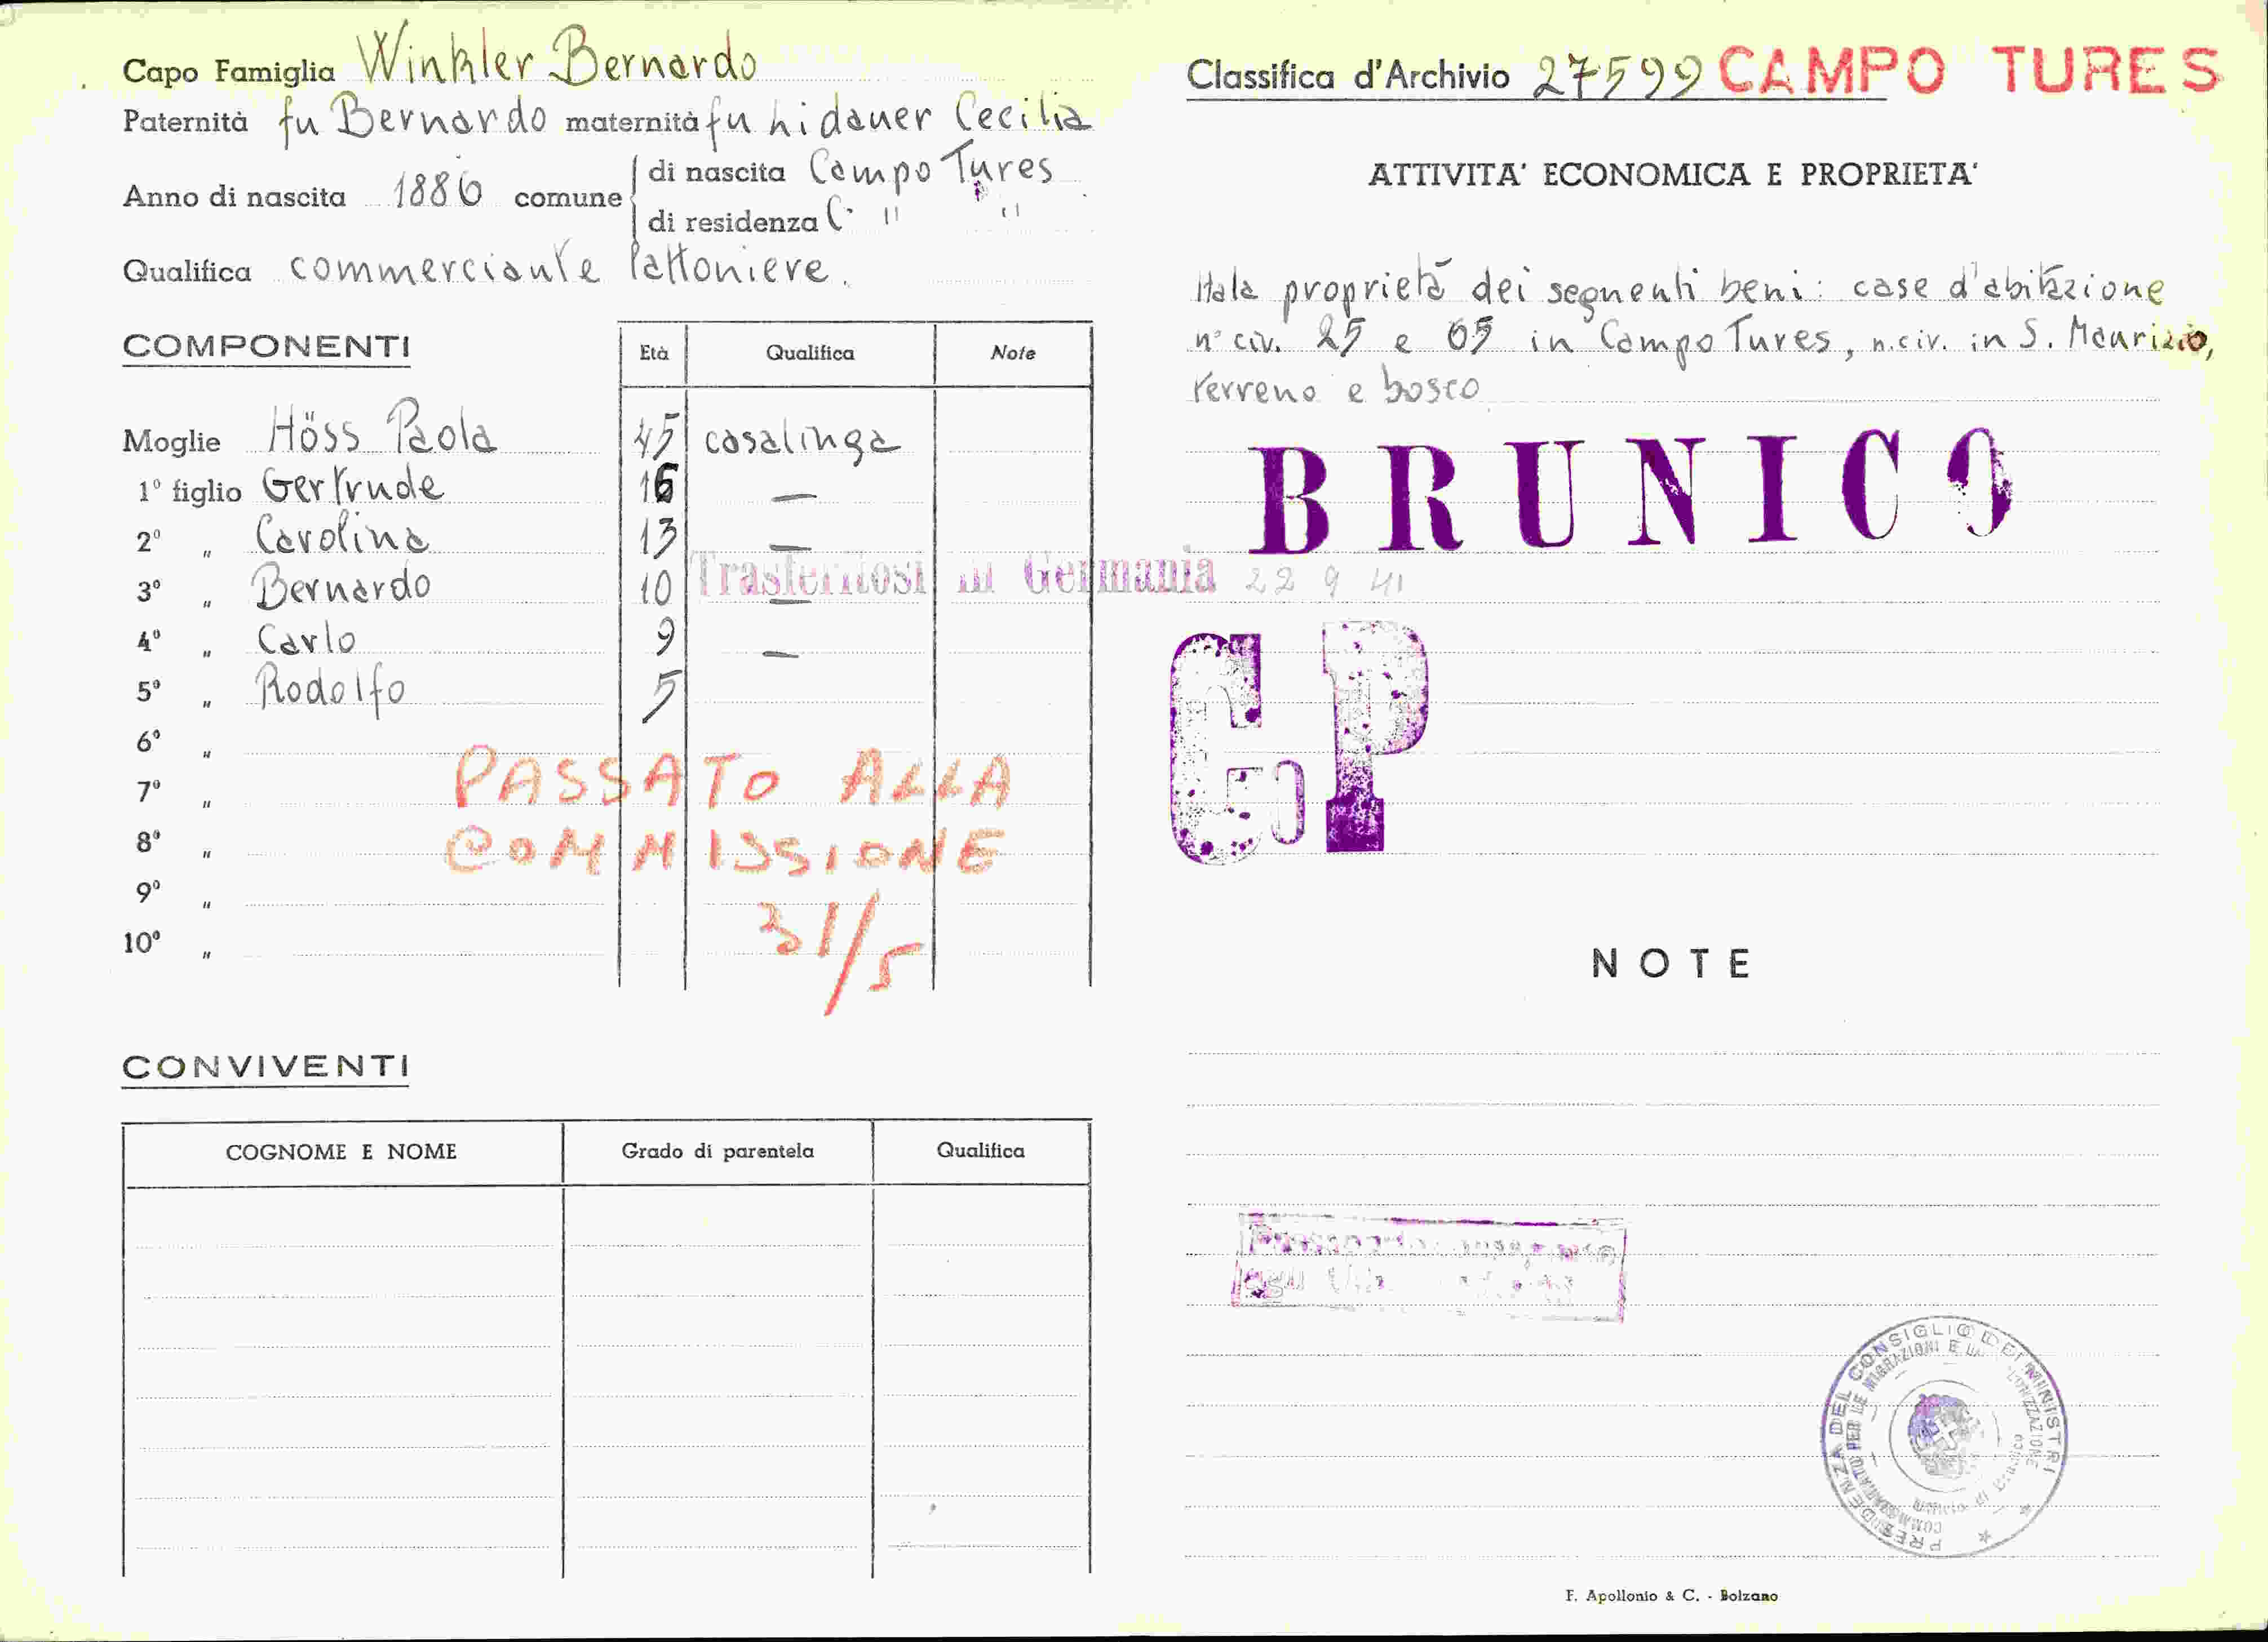 Capo Famiglia Winkler Bernardo
Paternità fu Bernardo maternità fu Lidauer Cecilia
Anno di nascita 1886 comune di nascita Campo Tures
di residenza C. " "
Qualifica commerciante lattoniere.
COMPONENTI Età Qualifica Note
Moglie Höss Paola 45 casalinga
1° figlio Gertrude 16 —
2° " Carolina 13 —
3° " Bernardo 10 —
4° " Carlo 9 —
5° " Rodolfo 5
6° "
7° "
8° "
9° "
10° "
Trasferitosi in Germania 22 9 41
PASSATO ALLA
COMMISSIONE
31/5
CONVIVENTI
COGNOME E NOME Grado di parentela Qualifica
Classifica d'Archivio 27599 CAMPO TURES
ATTIVITA' ECONOMICA E PROPRIETA'
Ha la proprietà dei seguenti beni: case d'abitazione
n° civ. 25 e 65 in Campo Tures, n. civ. in S. Maurizio,
terreno e bosco
BRUNICO
G P
NOTE
PRESIDENZA DEL CONSIGLIO DEI MINISTRI
COMMISSARIATO PER LE MIGRAZIONI E LA COLONIZZAZIONE
Ufficio di Brunico
F. Apollonio & C. - Bolzano